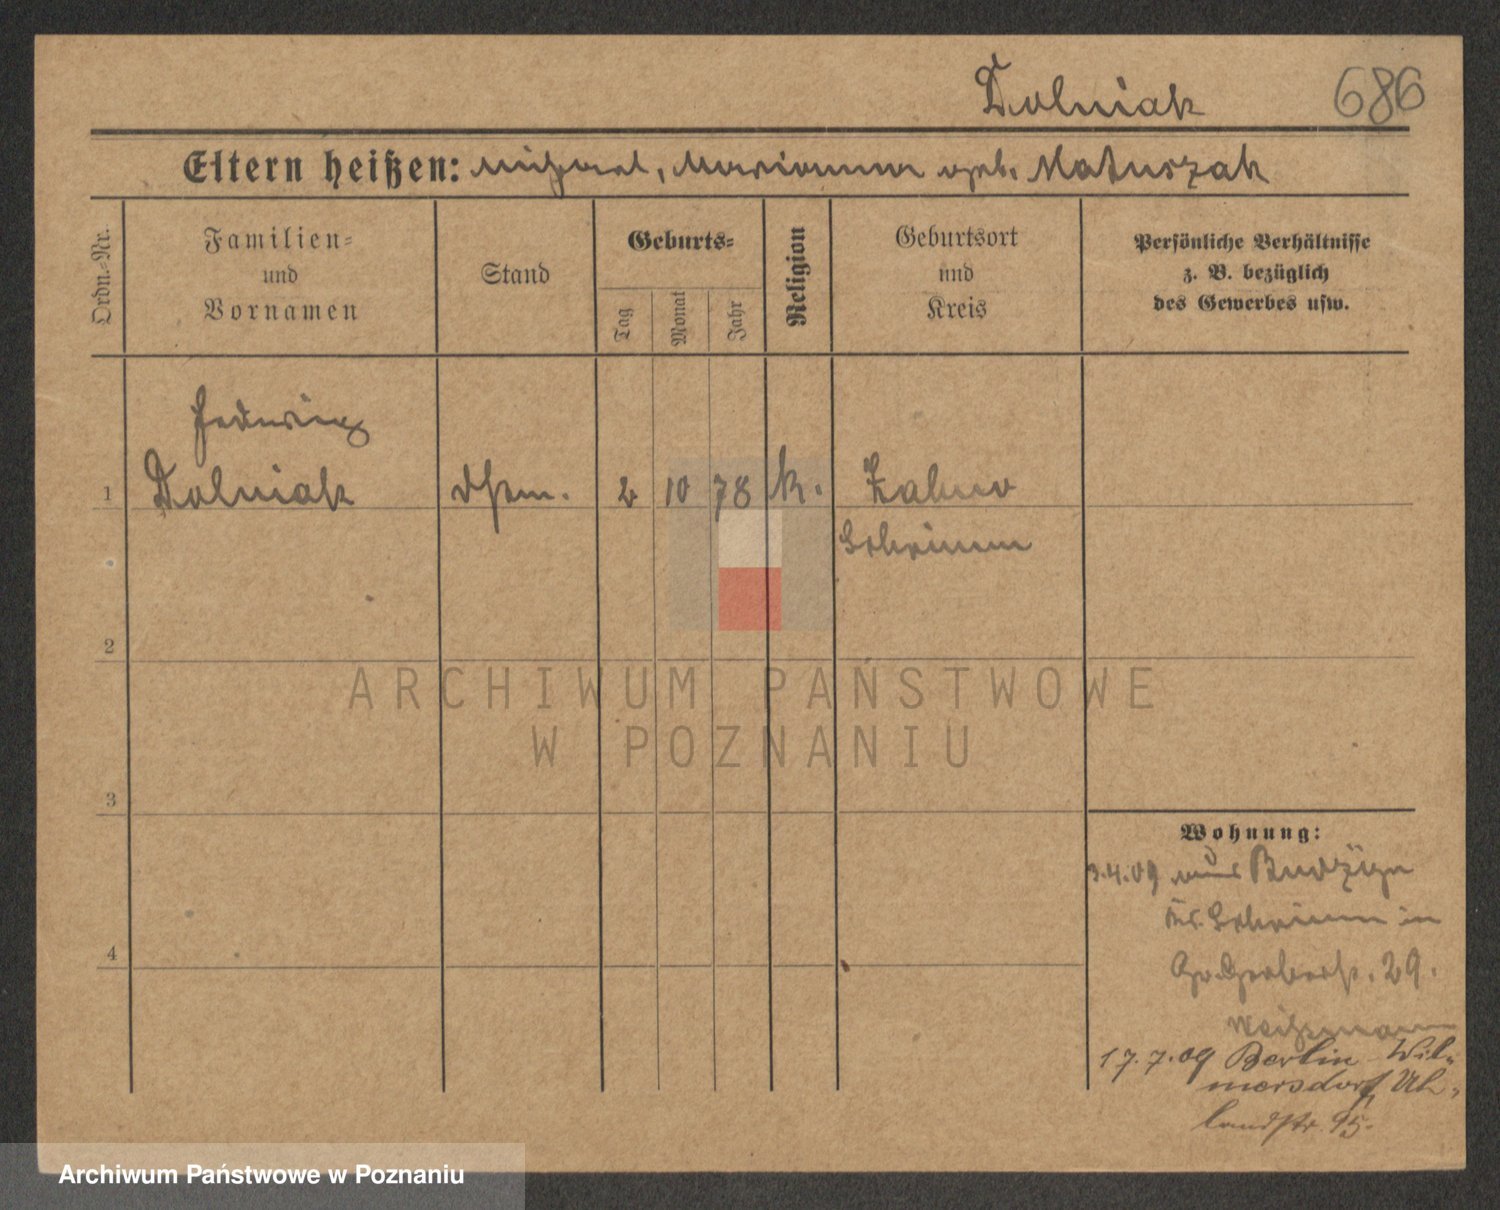 Dolniak 686
Eltern heißen: Michael, Marianna geb. Matuszak
Ordn.-Nr.
Familien-
und
Vornamen
Stand
Geburts-
Tag
Monat
Jahr
Religion
Geburtsort
und
Kreis
Persönliche Verhältnisse
z. B. bezüglich
des Gewerbes usw.
Hedwig
1 Dolniak 2 10 78 k. Zabno
Schrimm
2
3
4
Wohnung:
3.4.09 aus Budzyn
Kr. Schrimm in
Gr. Gerberstr. 29.
17.7.09 Berlin Wil-
mersdorf, Uh-
landstr. 95.
ARCHIWUM PAŃSTWOWE
W POZNANIU
Archiwum Państwowe w Poznaniu